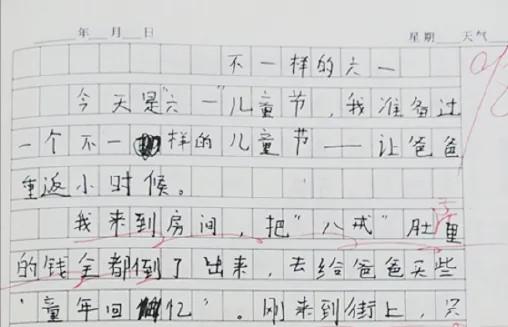 年 月 日 星期 天气
不一样的六一
今天是“六一”儿童节，我准备过
一个不一样的儿童节——让爸爸
重返小时候。
我来到房间，把“八戒”肚里
的钱全都倒了出来，去给爸爸买些
“童年回忆”。刚来到街上，只